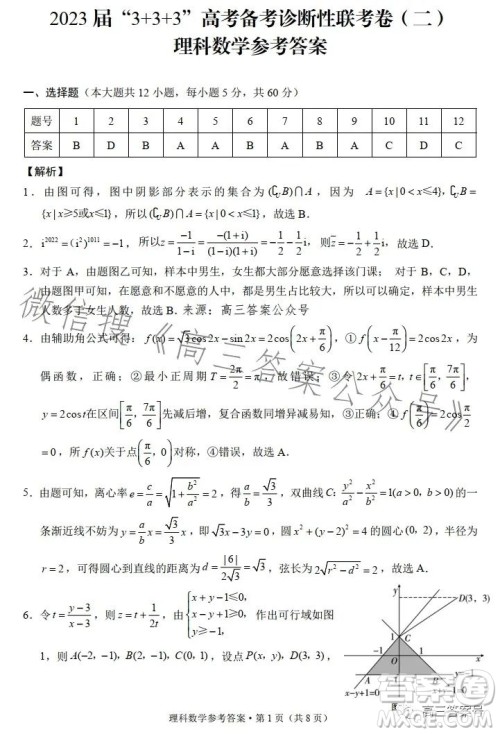 2023 届“3+3+3”高考备考诊断性联考卷（二）
理科数学参考答案
一、选择题（本大题共 12 小题，每小题 5 分，共 60 分）
题号 1 2 3 4 5 6 7 8 9 10 11 12
答案 B D A A A B B A A C D C
【解析】
1．由图可得，图中阴影部分表示的集合为(∁UB)∩A，因为 A={x|0<x≤4}，∁UB=
{x|x≥5或x≤1}，所以(∁UB)∩A={x|0<x≤1}，故选 B．
2．i²⁰²²=(i²)¹⁰¹¹=−1，所以z=−1/(1−i)=−(1+i)/((1−i)(1+i))=−1/2−1/2 i，则z̄=−1/2+1/2 i，故选 D．
3．对于 A，由题图乙可知，样本中男生，女生都大部分愿意选择该门课； 对于 B，C，D，
由题图甲可知，在愿意和不愿意的人中，都是男生多于女生，由于不知道样本中男生人
数多于女生人数，故选 B．来源：高三答案公众号
4．由辅助角公式可得：f(x)=√3cos2x−sin2x=2cos(2x+π/6)，①f(x−π/12)=2cos2x，为
偶函数，正确；②最小正周期T=2π/2=π，故错误；③令2x+π/6=t，t∈[π/6，7π/6]，
y=2cost在区间[π/6，7π/6]先减后增，复合函数同增异减，③正确；④f(π/6)=2cosπ/2
=0，所 f(x)关于点(π/6，0)对称，④错误，故选 A．
5．由题可知，离心率e=c/a=√(1+b²/a²)=2，得a/b=√3/3，双曲线C:y²/a²−x²/b²=1(a>0，b>0)的一
条渐近线不妨为y=a/b x=√3/3 x，即√3x−3y=0，圆(x−2)²+y²=4的圆心(2，0)，半径为
r=2，可得圆心到直线的距离为d=|6|/(2√3)=√3，弦长为2√(r²−d²)=2，故选 A．
6．令t=(y−3)/(x−3)，则z=t+1/(2t)，由{x+y−1≤0，x−y+1≥0，y≥−1，作出可行域如图
1，则A(−2，−1)，B(2，−1)，C(0，1)，设点P(x，y)，D(3，3)，
y
D(3，3)
1
C
−1
1
x
x−y+1=0
理科数学参考答案·第 1 页（共 8 页）
微信搜《高三答案公众号》
高三答案号